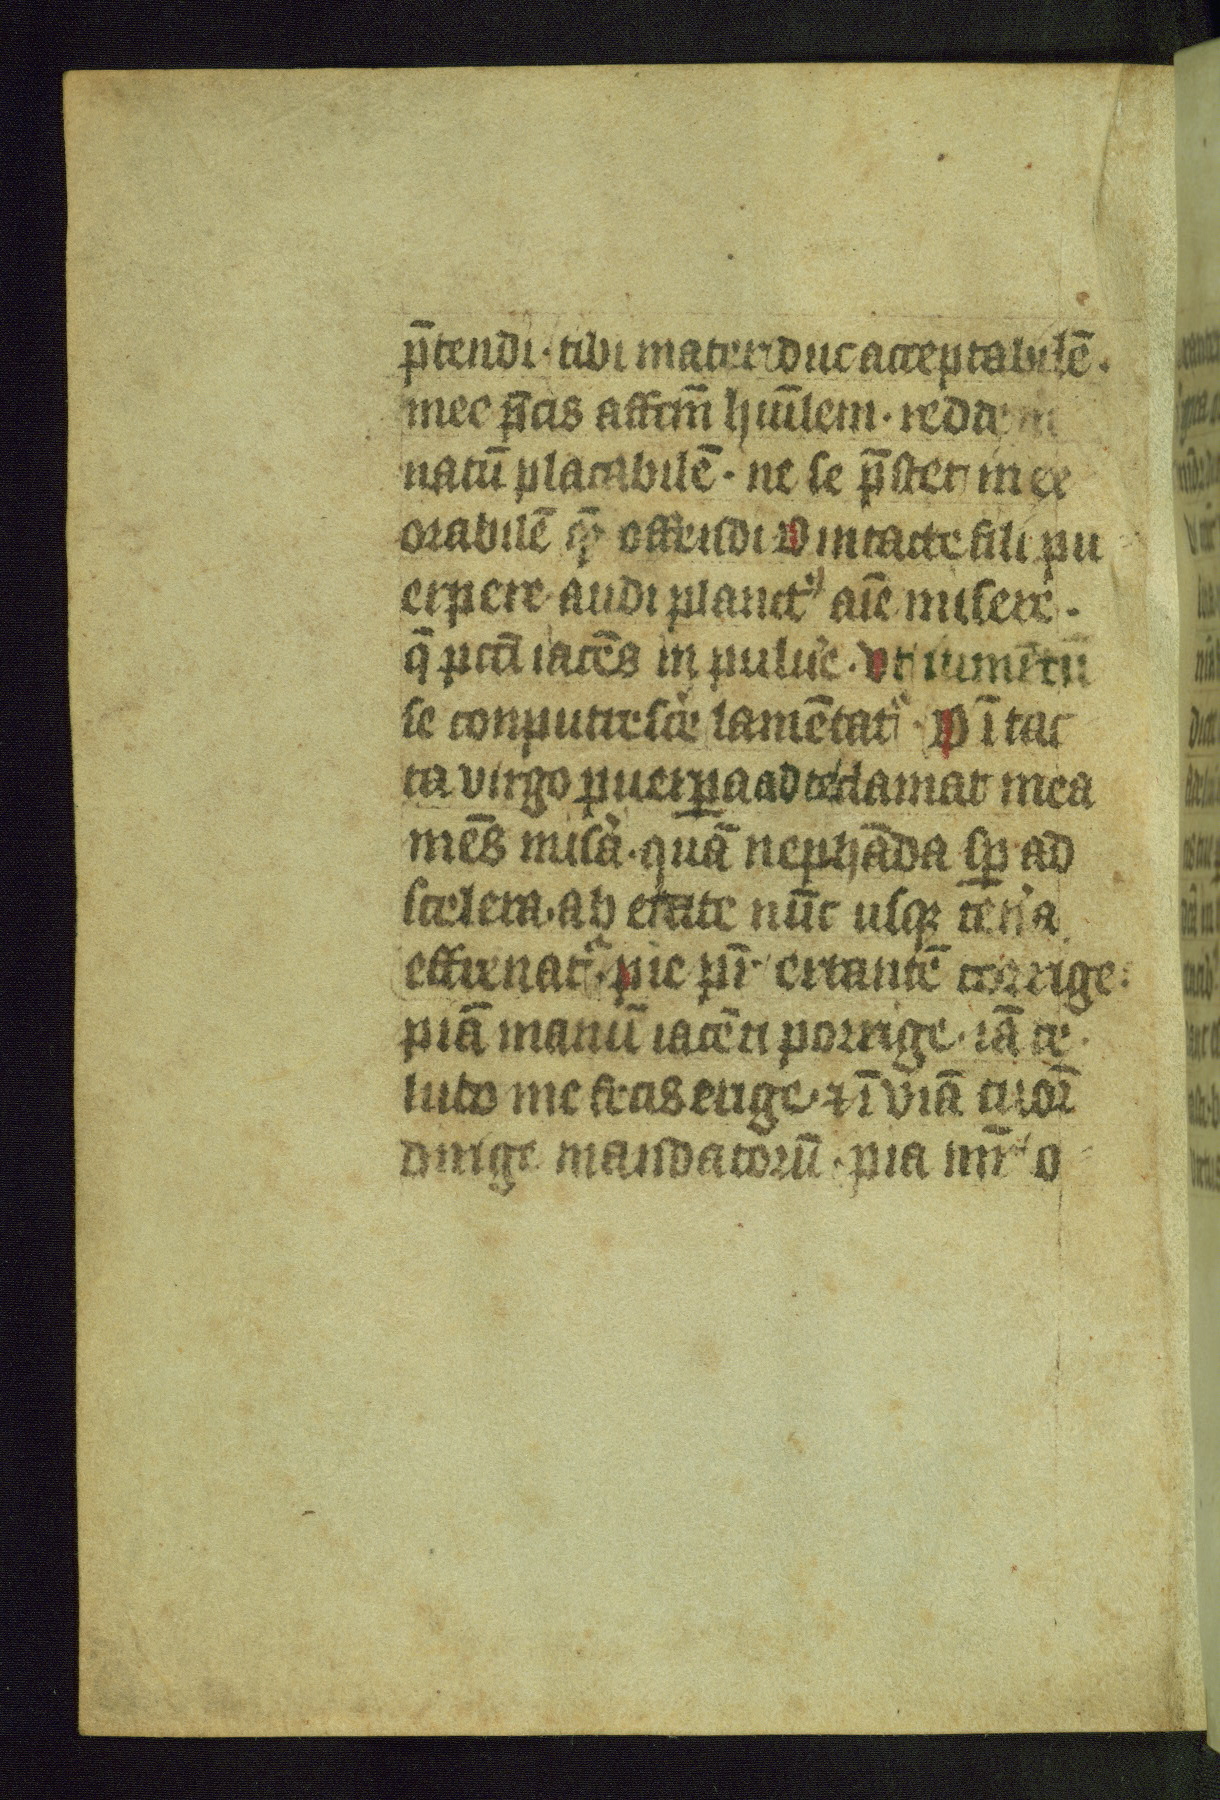 p̄tendi · tibi mater duc acceptabilē ·
mee p̄cis affcm̄ hūilem · redde m
natū placabilē · ne se p̄stet in ex
orabilē qͫ offendi O intacte fili pu
erpere audi planctꝰ aīe misere ·
q̄ pccī iacēs in puluẻ · vt iumētū
se conputresce lamētatͬ · O ītac
ta virgo puerꝑa ad te clamat mea
mēs misa · quā nephāda sꝑ ad
scelera · ab etate nūc usqꝫ tenͥa
effrenatͣ · pie pr̄ errantē corrige :
piā manū iacēti porrige · iā de
luto me fecis erige · ⁊ ī viā tuor̄
dirige mandatorū · pia mr̄ o